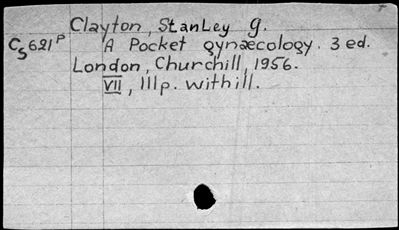 Clayton, Stanley G.
Cs621p A Pocket gynæcology. 3 ed.
London, Churchill, 1956.
VII, 111p. with ill.